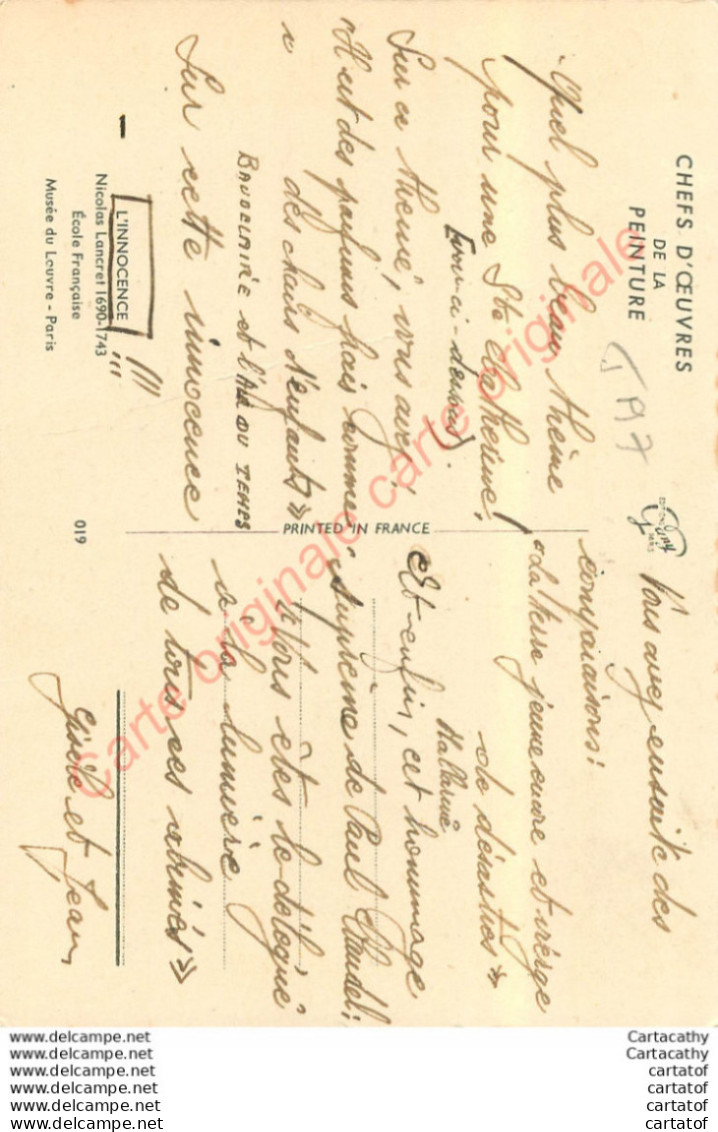 CHEFS D'ŒUVRES
DE LA
PEINTURE
Quel plus beau thème
pour une Ste Catherine!
(voir ci-dessous).
Sur ce thème, vous avez
"Il est des parfums frais comme
" des chairs d'enfants »
BAUDELAIRE et l'AIR DU TEMPS
Sur cette innocence
L'INNOCENCE !!!
Nicolas Lancret 1690-1743
École Française
Musée du Louvre - Paris
019
PRINTED IN FRANCE
EDITIONS
Guy
PARIS
Vous avez ensuite des
comparaisons:
« La terre jeune encore et vierge
de désastres »
Mallarmé
Et enfin, cet hommage
suprême de Paul Claudel:
"Vous êtes le délégué
à la lumière
de tous ces abimés »
Gisèle et Jean,
Carte originale carte originale
www.delcampe.net
www.delcampe.net
www.delcampe.net
www.delcampe.net
www.delcampe.net
www.delcampe.net
Cartacathy
Cartacathy
cartatof
cartatof
cartatof
cartatof